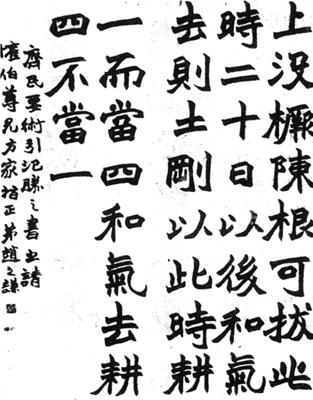 上没橛陳根可拔此
時二十日以後和氣
去則土剛以此時耕
一而當四和氣去耕
四不當一
齊民要術引氾勝之書請
伯尊兄方家指正弟趙之謙